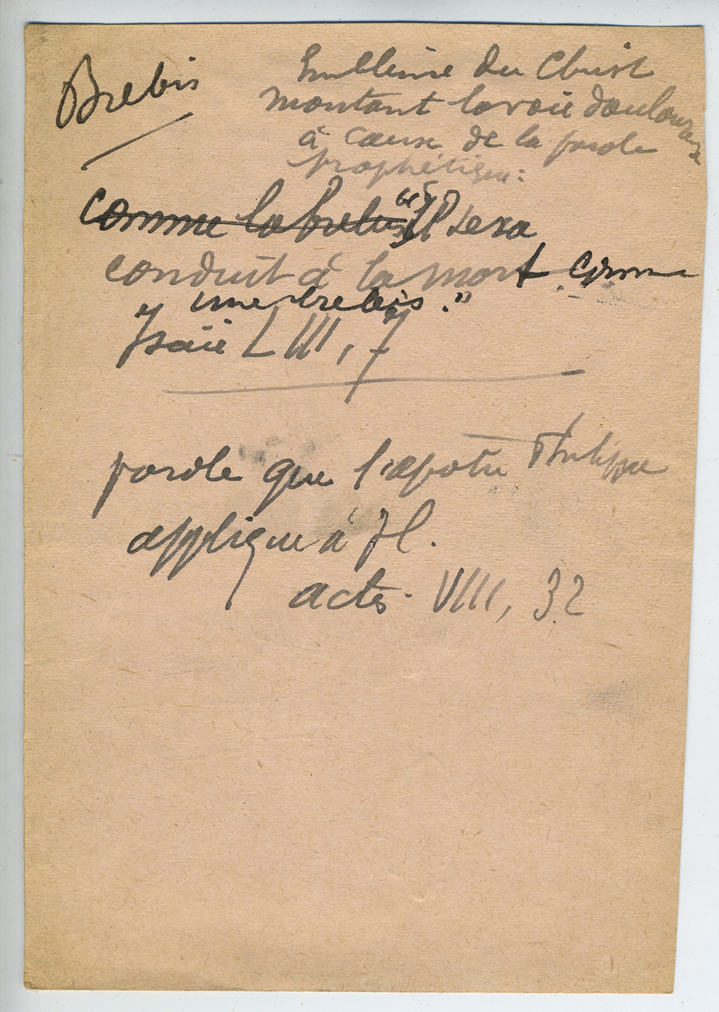 Brebis
Emblème du Christ
montant la voie douloureuse
à cause de la parole
prophétique:
comme la brebis "Il sera
conduit à la mort comme
une brebis."
Isaïe LIII, 7
parole que l'apôtre Philippe
applique à JC.
actes. VIII, 32